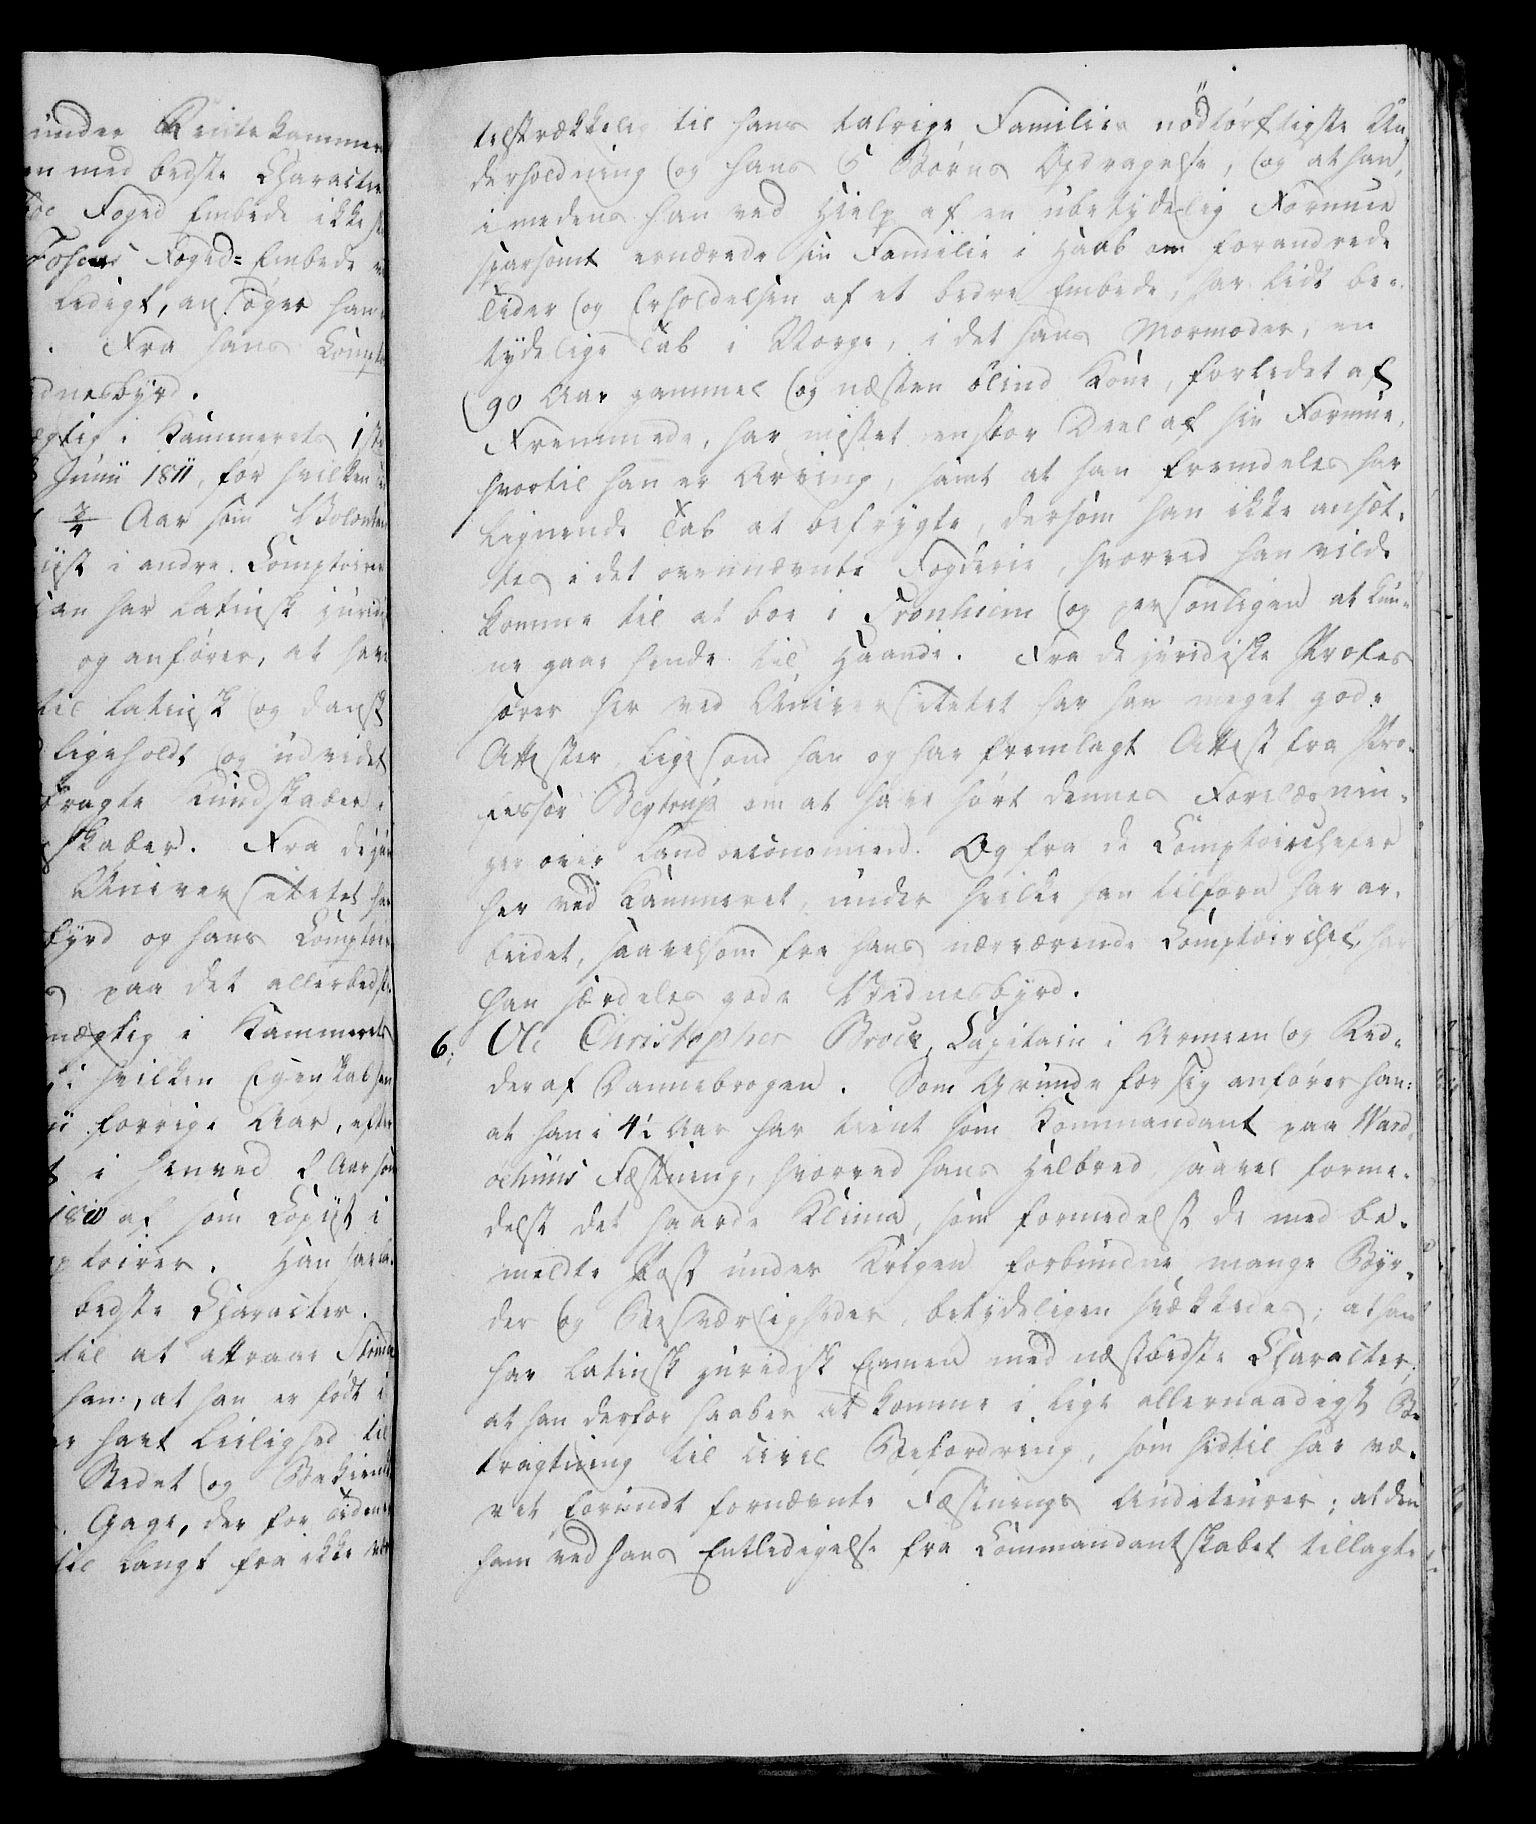 under Rentekammer
en med bedste Character
Foged Embede ikke
Fosens Foged=Embede
ledigt, ansøger han
Fra hans Compt
dnesbyrd.
ægtig i Kammerets 1ste
Junii 1811, før hvilken
3/4 Aar som Volontair
iist i andre Comptoirer
an har latinsk juridi
og anfører, at have
til latinsk og dansk
ligeholdt og udvidet
bragte Kundskaber.
skaber. Fra de jur
Universitetet har
byrd og hans Comptoir
s paa det allerbedste.
mægtig i Kammerets
i hvilken Egenskab han
ii forrige Aar, efter
t i henved 2 Aar som
1810 af som Copiist i
ptoirer. Han har la
bedste Character.
til at attraae Strinde
han:, at han er født i
er havt Leilighed til
Stedet og Bekiendt
. Gage, der for Tiden
til langt fra ikke er
telstrækkelig til hans talrige Families nødtørftigste Un-
derholdning og hans 6 Børns Opdragelse, og at han,
imedens han ved Hielp af en ubetydelig Formue
sparsomt ernærede sin Familie i Haab om forandrede
Tider og Erholdelsen af et bedre Embede, har lidt be-
tydelige Tab i Norge, i det hans Mormoder, en
90 Aar gammel og næsten blind Kone, forledet af
Fremmede, har mistet en stor Deel af sin Formue,
hvortil han er Arving, samt at han fremdeles har
lignende Tab at befrygte, dersom han ikke ansæt-
tes i det ovennævnte Fogderie, hvorved han vilde
komme til at boe i Tronhiem og personligen at kun-
ne gaae hende til Haande. Fra de juridiske Profes
sorer her ved Universitetet har han meget gode
Attester, ligesom han og har fremlagt Attest fra Pro-
fessor Begtrup om at have hørt dennes Forelæsnin-
ger over Landoeconomien. Og fra de Comptoirchefer
her ved Kammeret, under hvilke han tilforn har ar-
beidet, saavelsom fra hans nærværende Comptoirchef, har
han særdeles gode Vidnesbyrd.
6. Ole Christopher Brock, Capitain i Armeen og Rid-
der af Dannebrogen. Som Grunde for sig anfører han:
at han i 4½ Aar har tient som Kommandant paa Ward-
oehuus Fæstning, hvorved hans Helbred, saavel forme-
delst det haarde Klima, som formedelst de med be-
meldte Post under Krigen forbundne mange Byr-
der og Besværligheder, betydeligen svækkedes; at han
har latinsk juridisk Examen med næstbedste Character;
at han derfor haaber at komme i lige allernaadigst Be
tragtning til civil Befordring, som hidtil har væ-
ret forundt fornævnte Fæstnings Auditeurer; at den
ham ved hans Entledigelse fra Commandantskabet tillagte